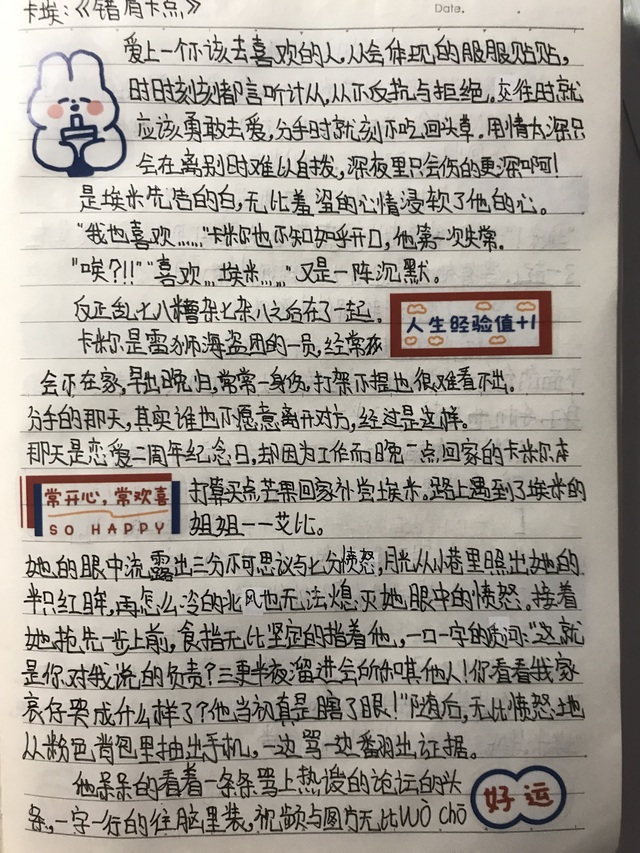 卡埃:《错肩卡点》
Date.
爱上一个不该去喜欢的人,从会体现的服服贴贴,
时时刻刻都言听计从,从不反抗与拒绝。交往时就
应该勇敢去爱,分手时就刻不吃回头草。用情太深只
会在离别时难以自拔,深夜里只会伤的更深啊!
是埃米先告的白,无比羞涩的心情浸软了他的心。
"我也喜欢……"卡米尔也不知如乎开口,他第一次失常。
"唉?!!""喜欢…埃米……"又是一阵沉默。
反正乱七八糟杂七杂八之后在了一起。
人生经验值+1
卡米尔是雷狮海盗团的一员,经常夜
会不在家,早出晚归,常常一身伤,打架不捏也很难看不出。
分手的那天,其实谁也不愿意离开对方,经过是这样。
那天是恋爱二周年纪念日,却因为工作而晚一点回家的卡米尔本
常开心,常欢喜
SO HAPPY
打算买点芒果回家补尝埃米。路上遇到了埃米的
姐姐——艾比。
她的眼中流露出三分不可思议与七分愤怒,月光从小巷里照出她的
半只红眸,再怎么冷的北风也无法熄灭她眼中的愤怒。接着
她抢先一步上前,食指无比坚定的指着他,一口一字的质问:"这就
是你对我说的负责?三更半夜溜进会所你哄其他人!你看看我家
衰仔哭成什么样了?他当初真是瞎了眼!"随后,无比愤怒地
从粉色背包里抽出手机,一边骂一边翻出证据。
他呆呆的看着一条条骂上热搜的论坛的头
条,一字一行的往脑里装,视频与图片无比WÒ chō
好运